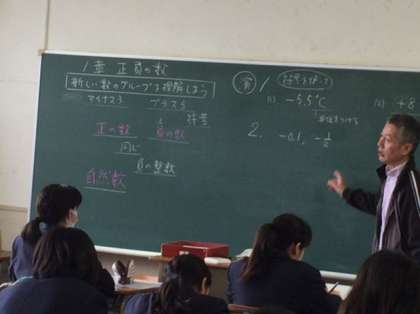 1章 正負の数
新しい数のグループを理解しよう
マイナス3 プラス5
符号
正の数 負の数
同じ 負の整数
自然数
符号を使って
(1) -5.5℃
単位をつける
(2) +8
2. -0.1, -1/2